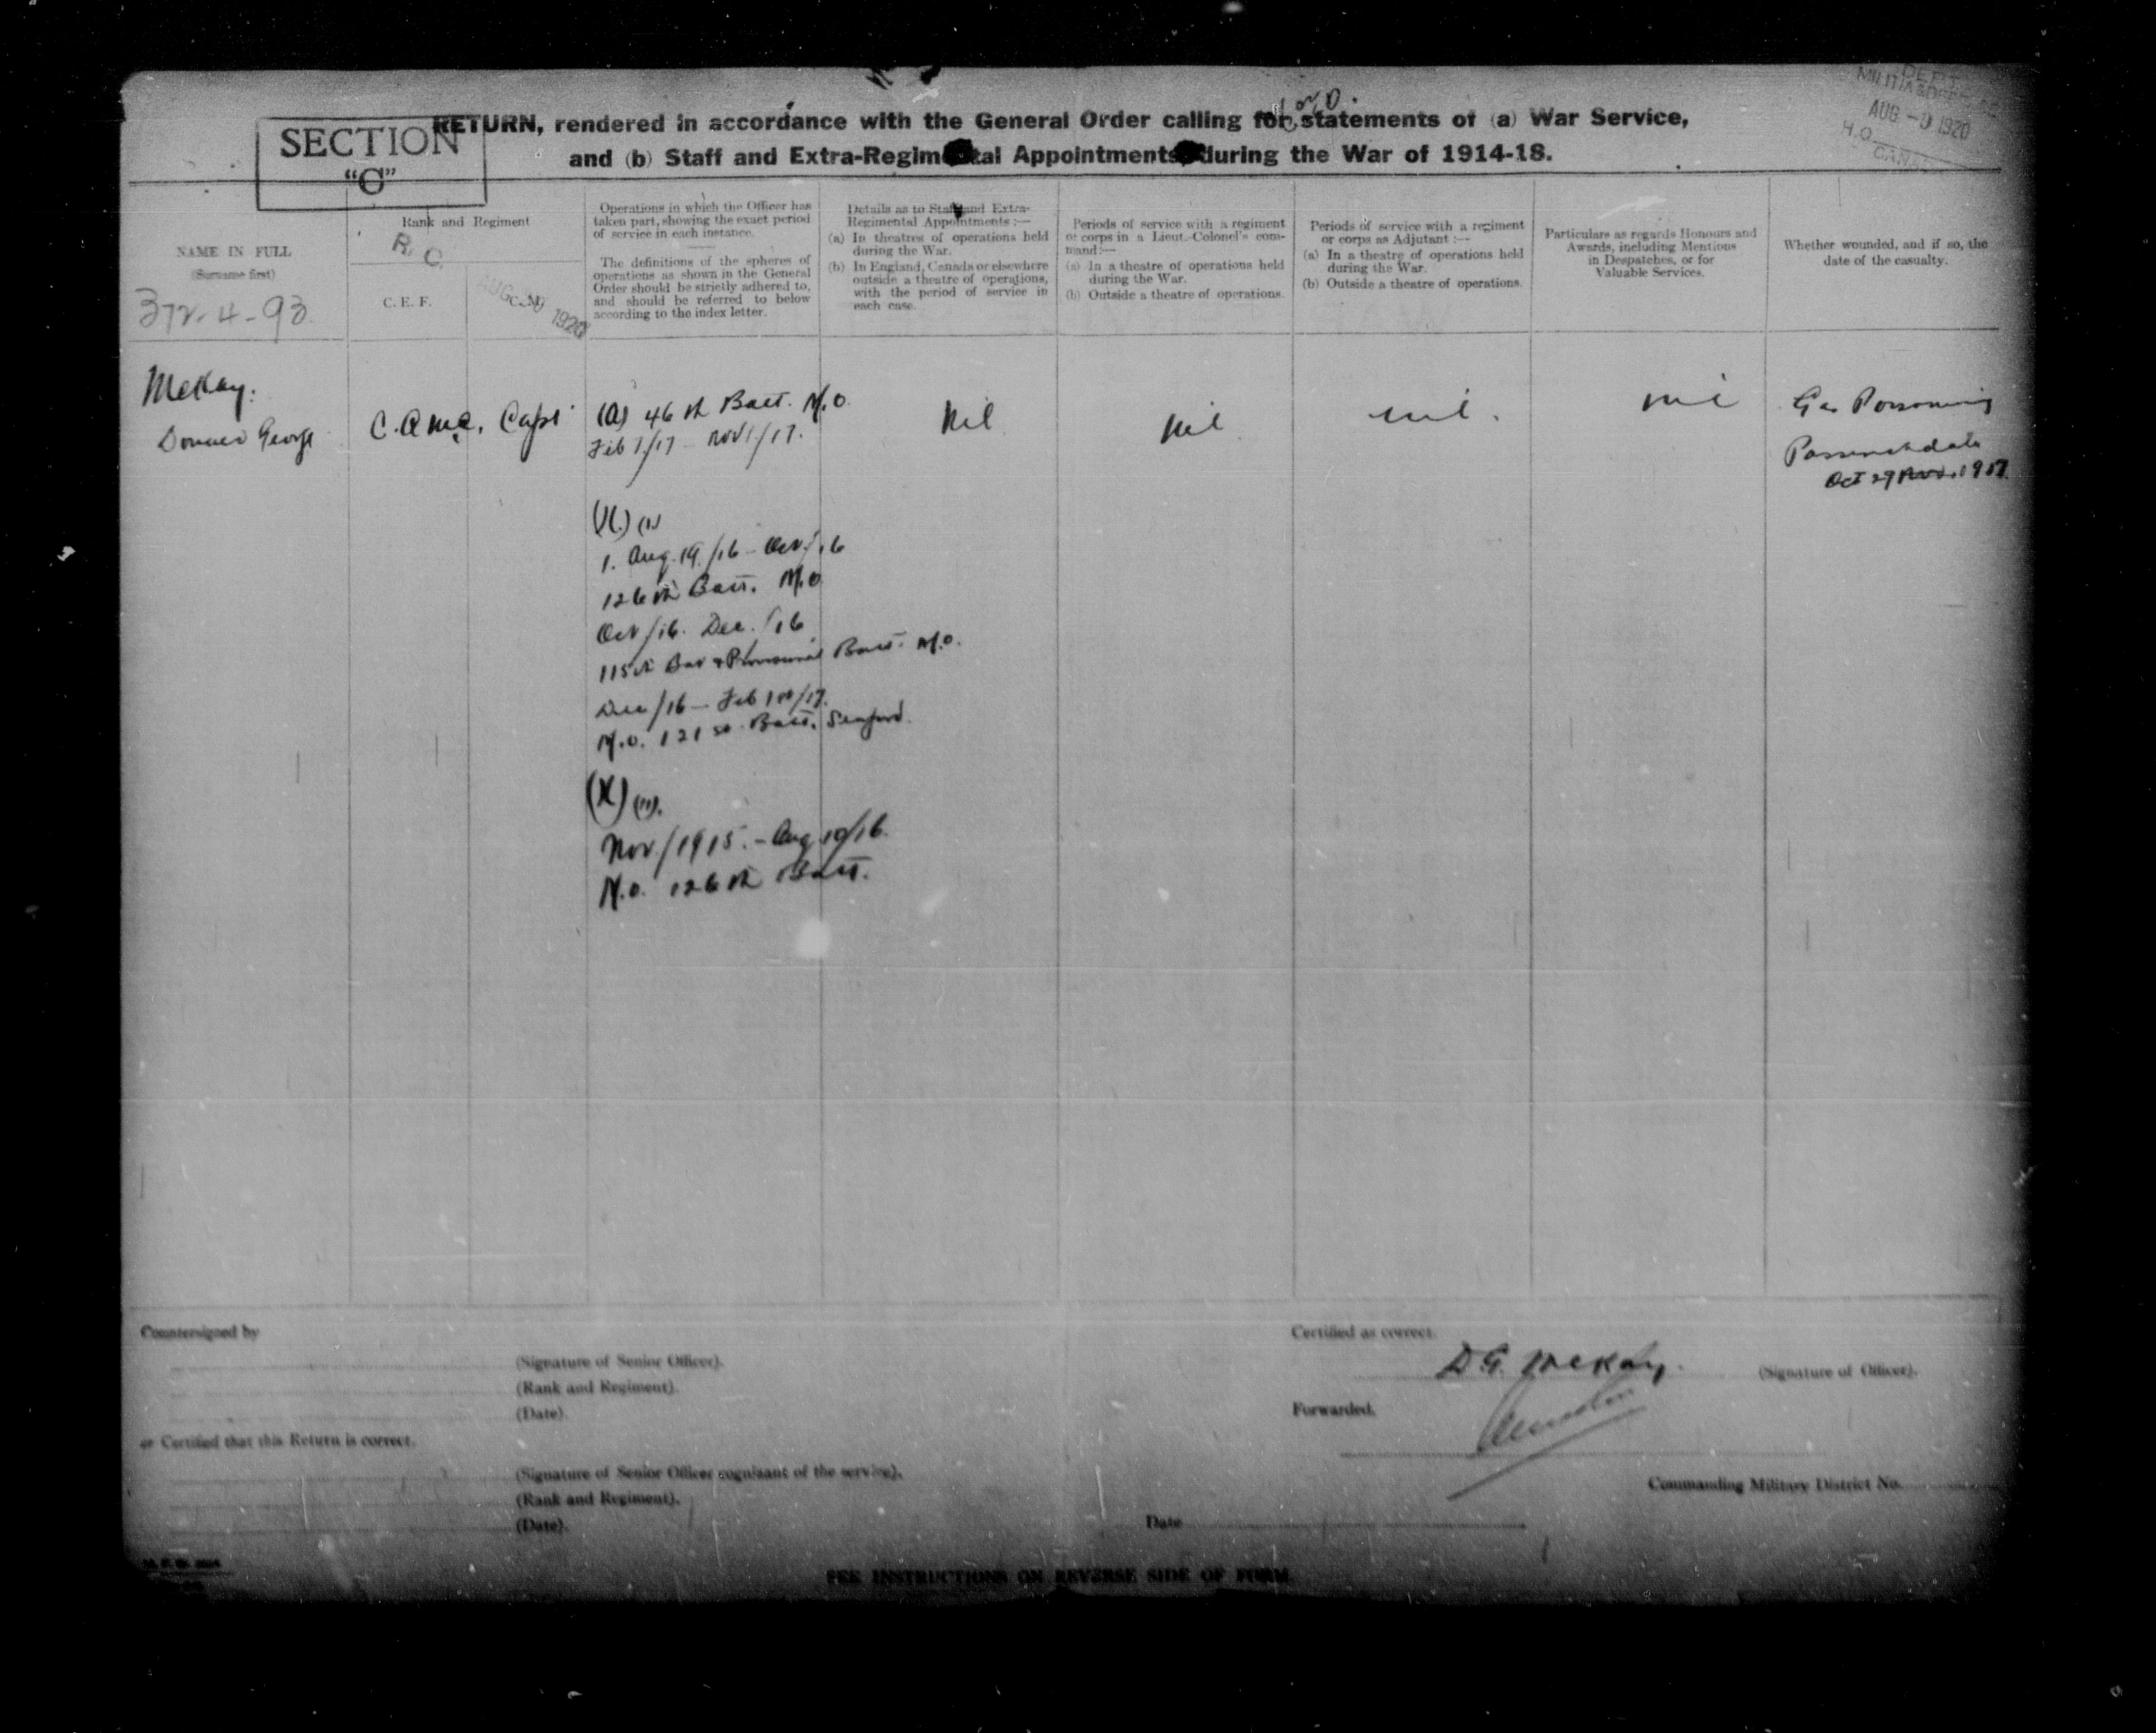 RETURN, rendered in accordance with the General Order calling for statements of (a) War Service,
and (b) Staff and Extra-Regimental Appointments during the War of 1914-18.
SECTION
"C"
DEPT
MILITIA & DEFENCE
AUG 1920
H.Q.
CANADA
NAME IN FULL
(Surname first)
372-4-93
Rank and Regiment
R. O.
C. E. F.
C. M.
AUG 1920
Operations in which the Officer has
taken part, showing the exact period
of service in each instance.
The definitions of the spheres of
operations as shown in the General
Order should be strictly adhered to,
and should be referred to below
according to the index letter.
Details as to Staff and Extra-
Regimental Appointments :—
(a) In theatres of operations held
during the War.
(b) In England, Canada or elsewhere
outside a theatre of operations,
with the period of service in
each case.
Periods of service with a regiment
or corps in a Lieut.-Colonel's com-
mand:—
(a) In a theatre of operations held
during the War.
(b) Outside a theatre of operations.
Periods of service with a regiment
or corps as Adjutant :—
(a) In a theatre of operations held
during the War.
(b) Outside a theatre of operations.
Particulars as regards Honours and
Awards, including Mentions
in Despatches, or for
Valuable Services.
Whether wounded, and if so, the
date of the casualty.
McKay.
Donald George
C.A.M.C. Capt
(A) 46th Batt. M.O.
Feb 1/17 - Nov 1/17.
Nil
Nil
nil.
nil
Gas Poisoning
Passchendale
Oct 29 Nov. 1917
(1)
1. Aug. 19/16 - Oct/16
126th Batt. M.O
Oct/16. Dec./16
115th Bat & Provisional Batt. M.O.
Dec/16 - Feb 1st/17.
M.O. 121st Batt. Seaford.
(X) (11).
Nov/1915. - Aug 19/16.
M.O. 126th Batt.
Countersigned by
(Signature of Senior Officer).
(Rank and Regiment).
(Date).
or Certified that this Return is correct.
(Signature of Senior Officer cognisant of the service).
(Rank and Regiment).
(Date).
Certified as correct.
D G. McKay.
(Signature of Officer).
Forwarded.
Commanding Military District No.
Date
SEE INSTRUCTIONS ON REVERSE SIDE OF FORM